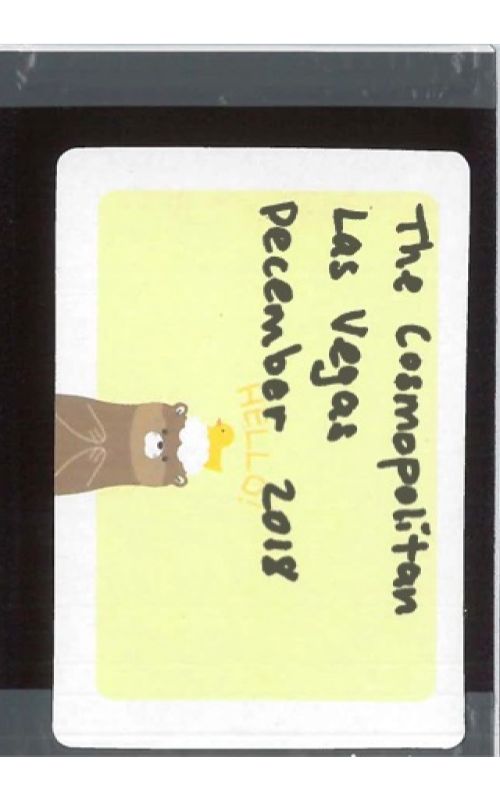 The Cosmopolitan
Las Vegas
December 2018
HELLO!